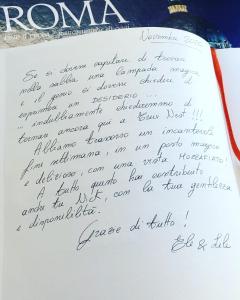 ROMA
Novembre
Se si dovesse capitare di trovare
nella sabbia una lampada magica
e il genio ci dovesse chiedere di
esprimere un DESIDERIO ...
... indubbiamente chiederemmo di
tornare ancora qui a True Nest !!!
Abbiamo trascorso un incantevole
fine settimana, in un posto magico
e delizioso, con una vista MOZZAFIATO!
A tutto questo ha contribuito
anche tu, con la tua gentilezza
e disponibilità.
Grazie di tutto!
Eli & Lele